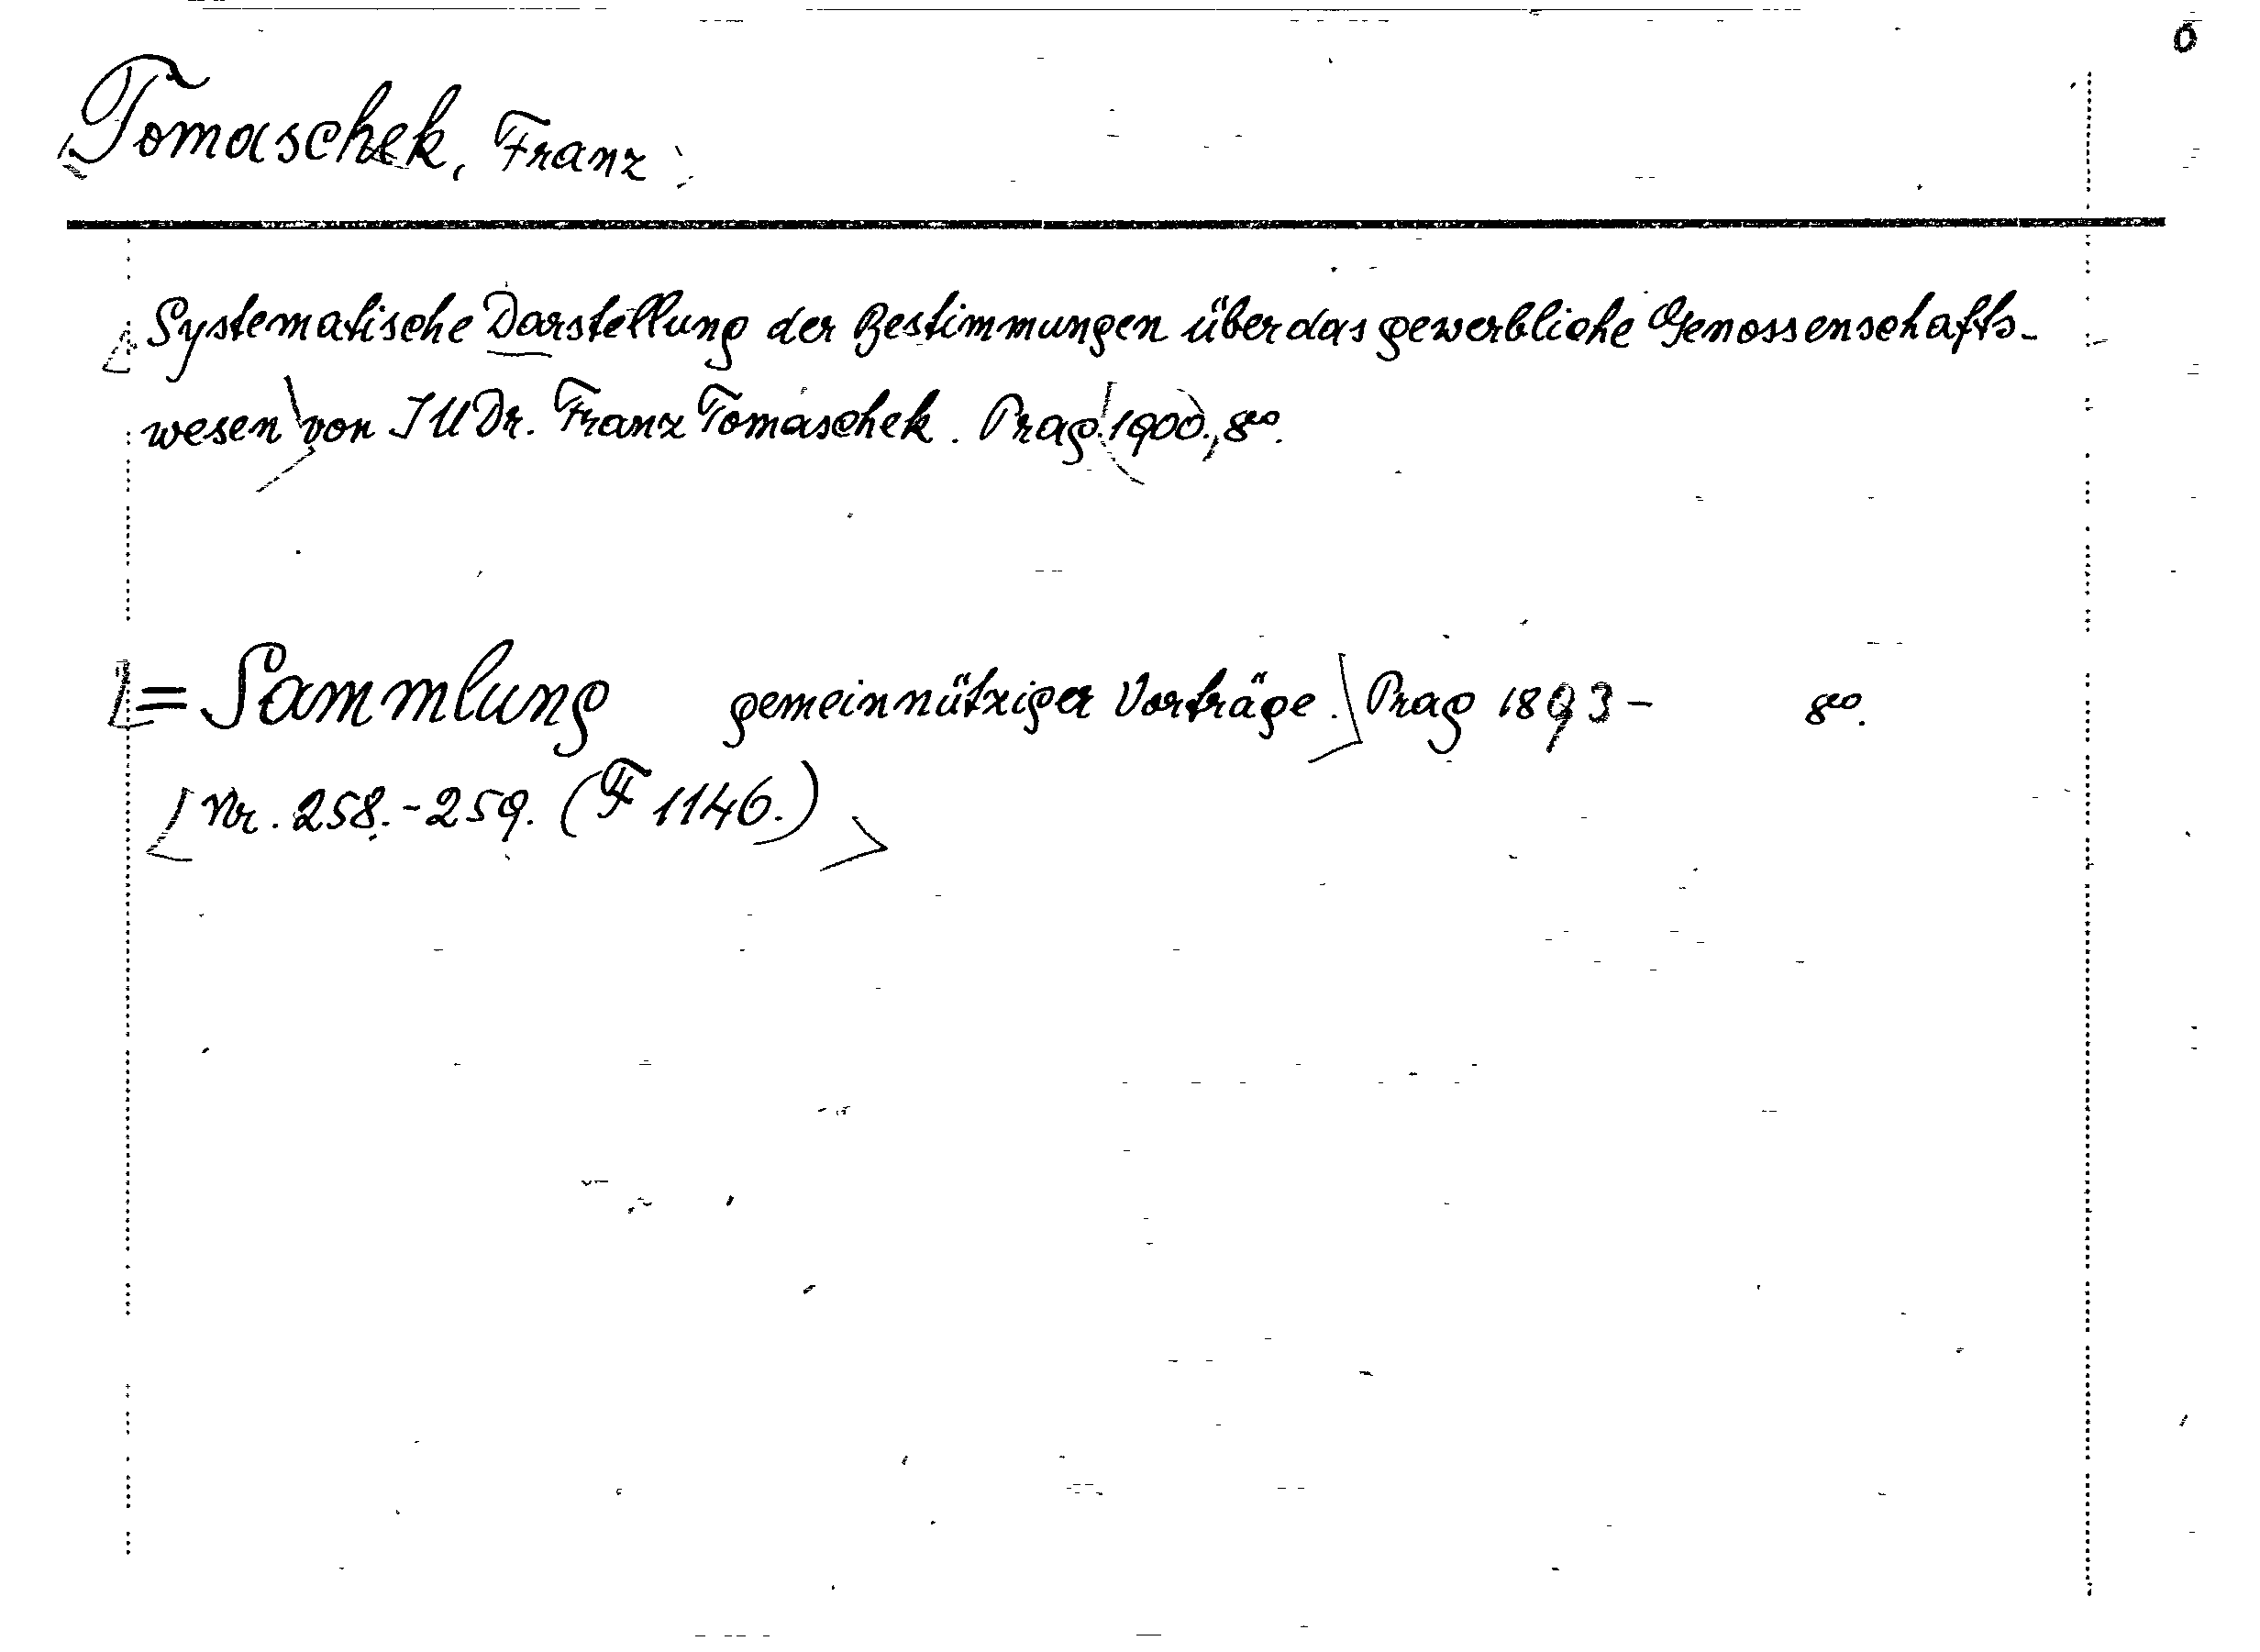 0
Tomaschek, Franz
Systematische Darstellung der Bestimmungen über das gewerbliche Genossenschafts-
wesen von JUDr. Franz Tomaschek. Prag. 1900., 8°.
= Sammlung gemeinnütziger Vorträge. Prag 1893- 8°.
Nr. 258.-259. (F 1146.)